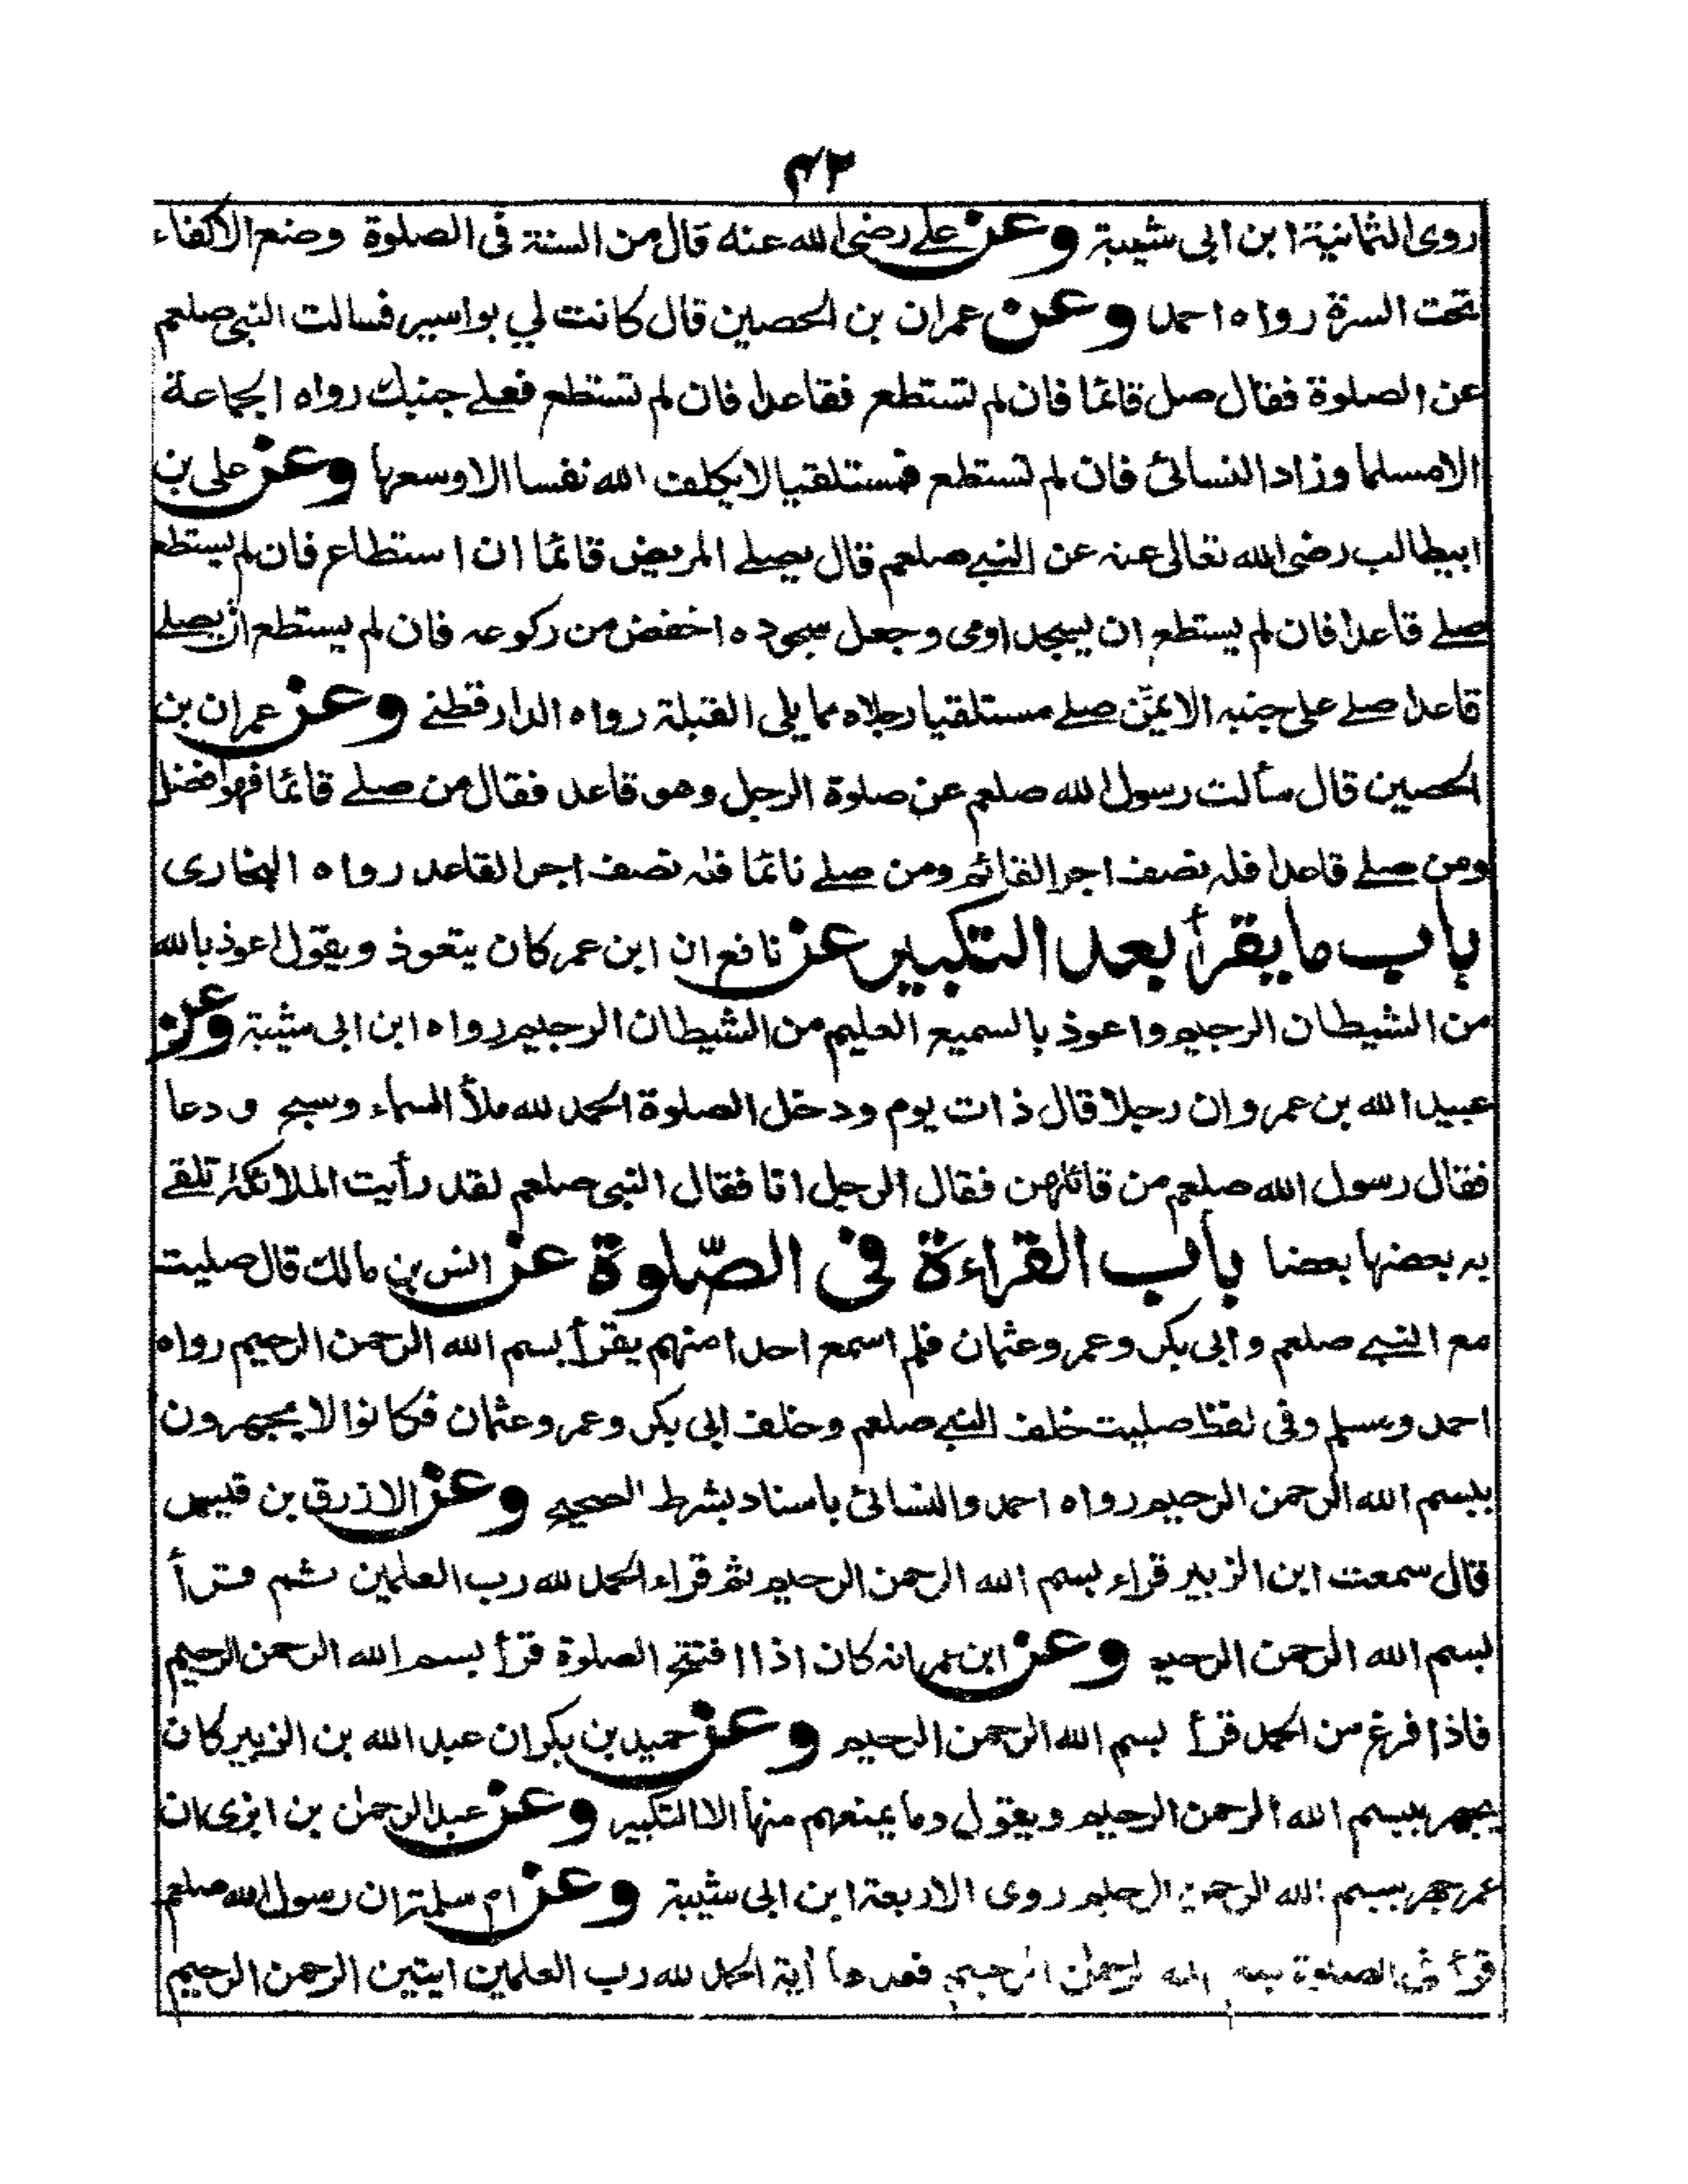 ٤٢
روى الثمانية ابن ابى شيبة وعن على رضى الله عنه قال من السنة فى الصلوة وضع الاكفاء
تحت السرة رواه احمد وعن عمران بن الحصين قال كانت لي بواسير فسالت النبى صلعم
عن الصلوة فقال صل قائما فان لم تستطع فقاعدا فان لم تستطع فعلے جنبك رواه الجماعة
الا مسلما وزاد النسائى فان لم تستطع فمستلقيا لا يكلف الله نفسا الا وسعها وعن على بن
ابيطالب رضى الله تعالى عنه عن النبے صلعم قال يصلے المريض قائما ان استطاع فان لم يستطع
صلے قاعدا فان لم يستطع ان يسجد اومى وجعل سجوده اخفض من ركوعه فان لم يستطع ان يصلے
قاعدا صلے على جنبه الايمن صلے مستلقيا رجلاه مما يلى القبلة رواه الدارقطنے وعن عمران بن
الحصين قال سألت رسول الله صلعم عن صلوة الرجل وهو قاعد فقال من صلے قائما فهو افضل
ومن صلے قاعدا فله نصف اجر القائم ومن صلے نائما فله نصف اجر القاعد رواه البخارى
باب ما يقرأ بعد التكبير عن نافع ان ابن عمر كان يتعوذ ويقول اعوذ بالله
من الشيطان الرجيم واعوذ بالسميع العليم من الشيطان الرجيم رواه ابن ابى شيبة وعن
عبيد الله بن عمر وان رجلا قال ذات يوم ودخل الصلوة الحمد لله ملأ السماء وسبح ودعا
فقال رسول الله صلعم من قائلهن فقال الرجل انا فقال النبى صلعم لقد رأيت الملائكة تلقے
به بعضها بعضا باب القراءة فى الصّلوة عن انس بن مالك قال صليت
مع النبے صلعم وابى بكر وعمر وعثمان فلم اسمع احدا منهم يقرأ بسم الله الرحمن الرحيم رواه
احمد ومسلم وفى لفظ صليت خلف النبے صلعم وخلف ابى بكر وعمر وعثمان فكانوا لا يجهرون
ببسم الله الرحمن الرحيم رواه احمد والنسائى باسناد بشرط الصحيح وعن الازرق بن قيس
قال سمعت ابن الزبير قراء بسم الله الرحمن الرحيم ثم قراء الحمد لله رب العلمين ثم قرأ
بسم الله الرحمن الرحيم وعن ابن عمر انه كان اذا افتتح الصلوة قرأ بسم الله الرحمن الرحيم
فاذا فرغ من الحمد قرأ بسم الله الرحمن الرحيم وعن حميد بن بكر ان عبد الله بن الزبير كان
يجهر ببسم الله الرحمن الرحيم ويقول وما يمنعهم منها الا التكبير وعن عبد الرحمن بن ابزى ان
عمر جهر ببسم الله الرحمن الرحيم روى الاربعة ابن ابى شيبة وعن ام سلمة ان رسول الله صلعم
قرأ فى الصلوة بسم الله الرحمن الرحيم فعدها آية الحمد لله رب العلمين ايتين الرحمن الرحيم